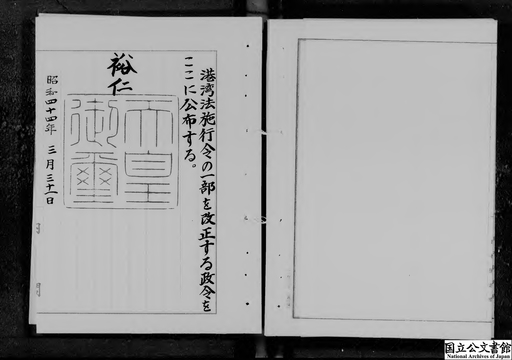 港湾法施行令の一部を改正する政令を
ここに公布する。
裕仁
天皇
御璽
昭和四十四年 三月三十一日
国立公文書館
National Archives of Japan